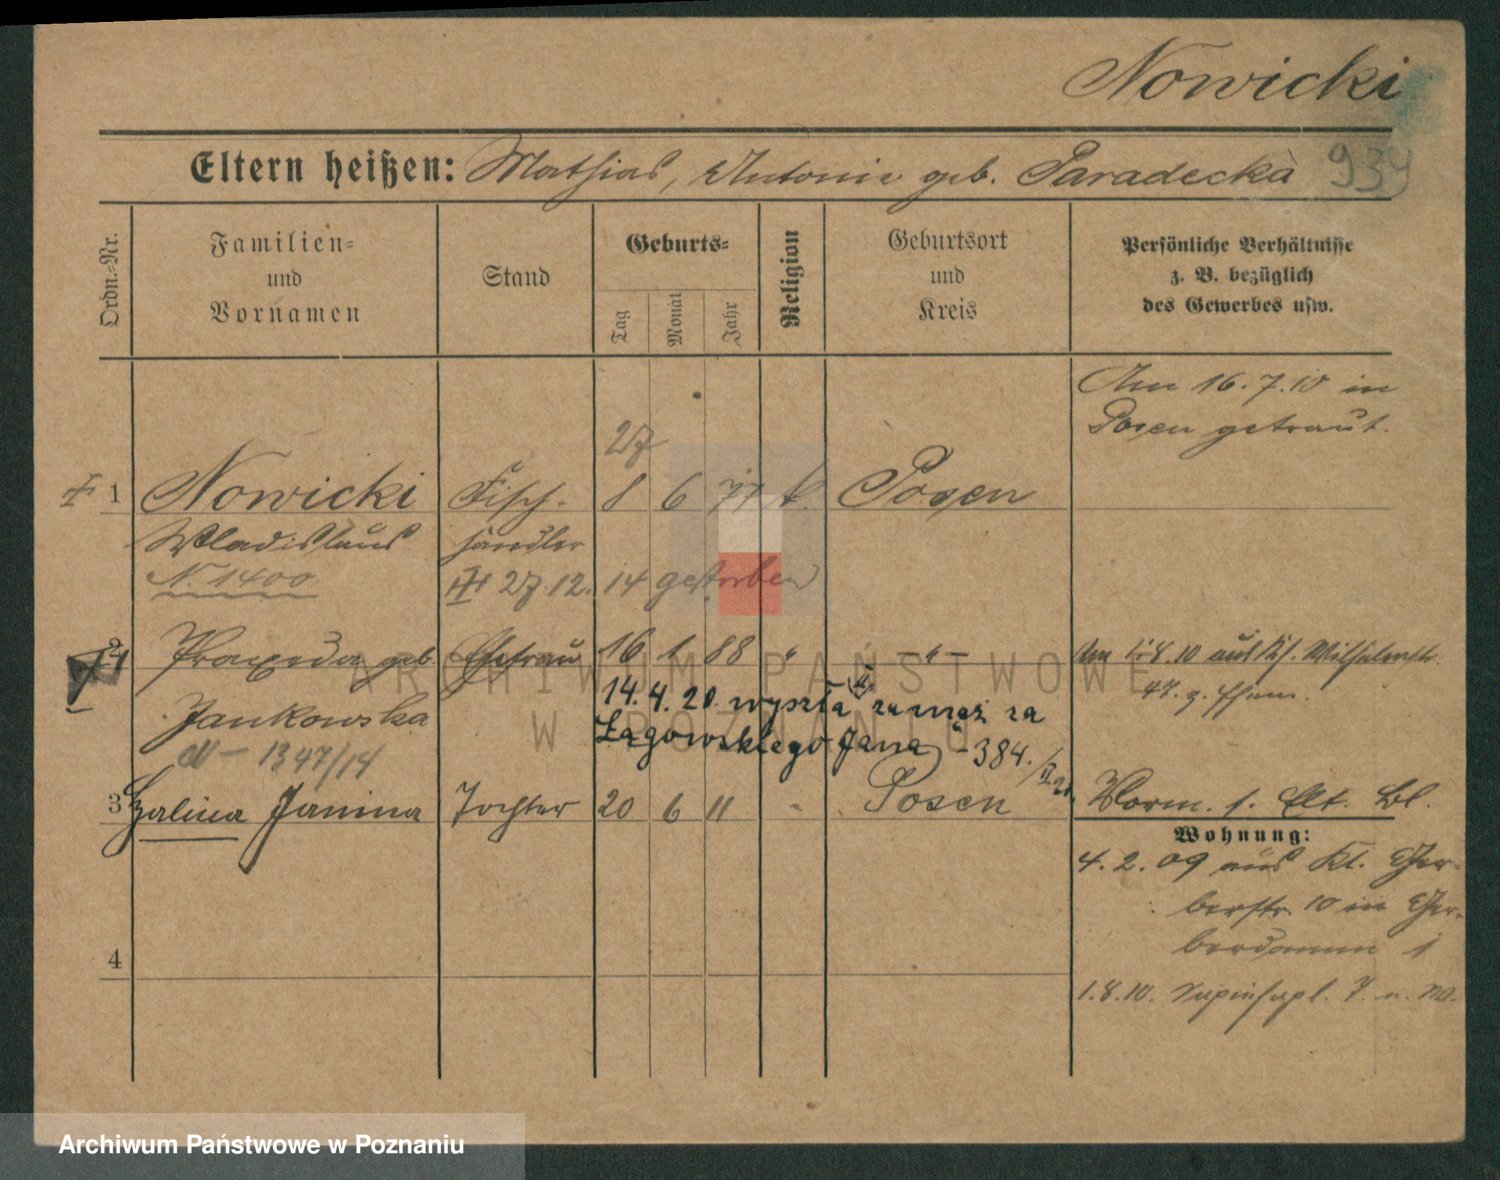 Nowicki
Eltern heißen: Mathias, Antonie geb. Paradecka
939
Ordn.-Nr.
Familien-
und
Vornamen
Stand
Geburts-
Tag
Monat
Jahr
Religion
Geburtsort
und
Kreis
Persönliche Verhältnisse
z. B. bezüglich
des Gewerbes usw.
Am 16.7.10 in
Posen getraut.
27
1 Nowicki Fisch- 8 6 77 k. Posen
Wladislaus händler
N. 1400 27.12. 14 gestorben
2 Praxeda geb. Ehefrau 16 1 88 " - " -
Jankowska
14.4.20 wyszła zamąż za
Łagowskiego Jana - 384./II 20.
M - 1347/14
3 Halina Janina Tochter 20 6 11 " Posen
Wohnung:
4.2.09 aus Kl. Ger-
berstr. 10 in Ger-
berdamm 1
1.8.10.
4
ARCHIWUM PAŃSTWOWE
W POZNANIU
Archiwum Państwowe w Poznaniu